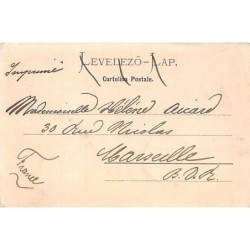 LEVELEZŐ-LAP.
Imprimé
Cartolina Postale.
Mademoiselle Hélène Aicard
30, Rue Nicolas
Marseille
France
B.D.R.